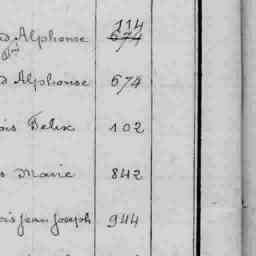 114
d Alphonse 674
d Alphonse 674
ois Felix 102
s Marie 842
ois Jean Joseph 944